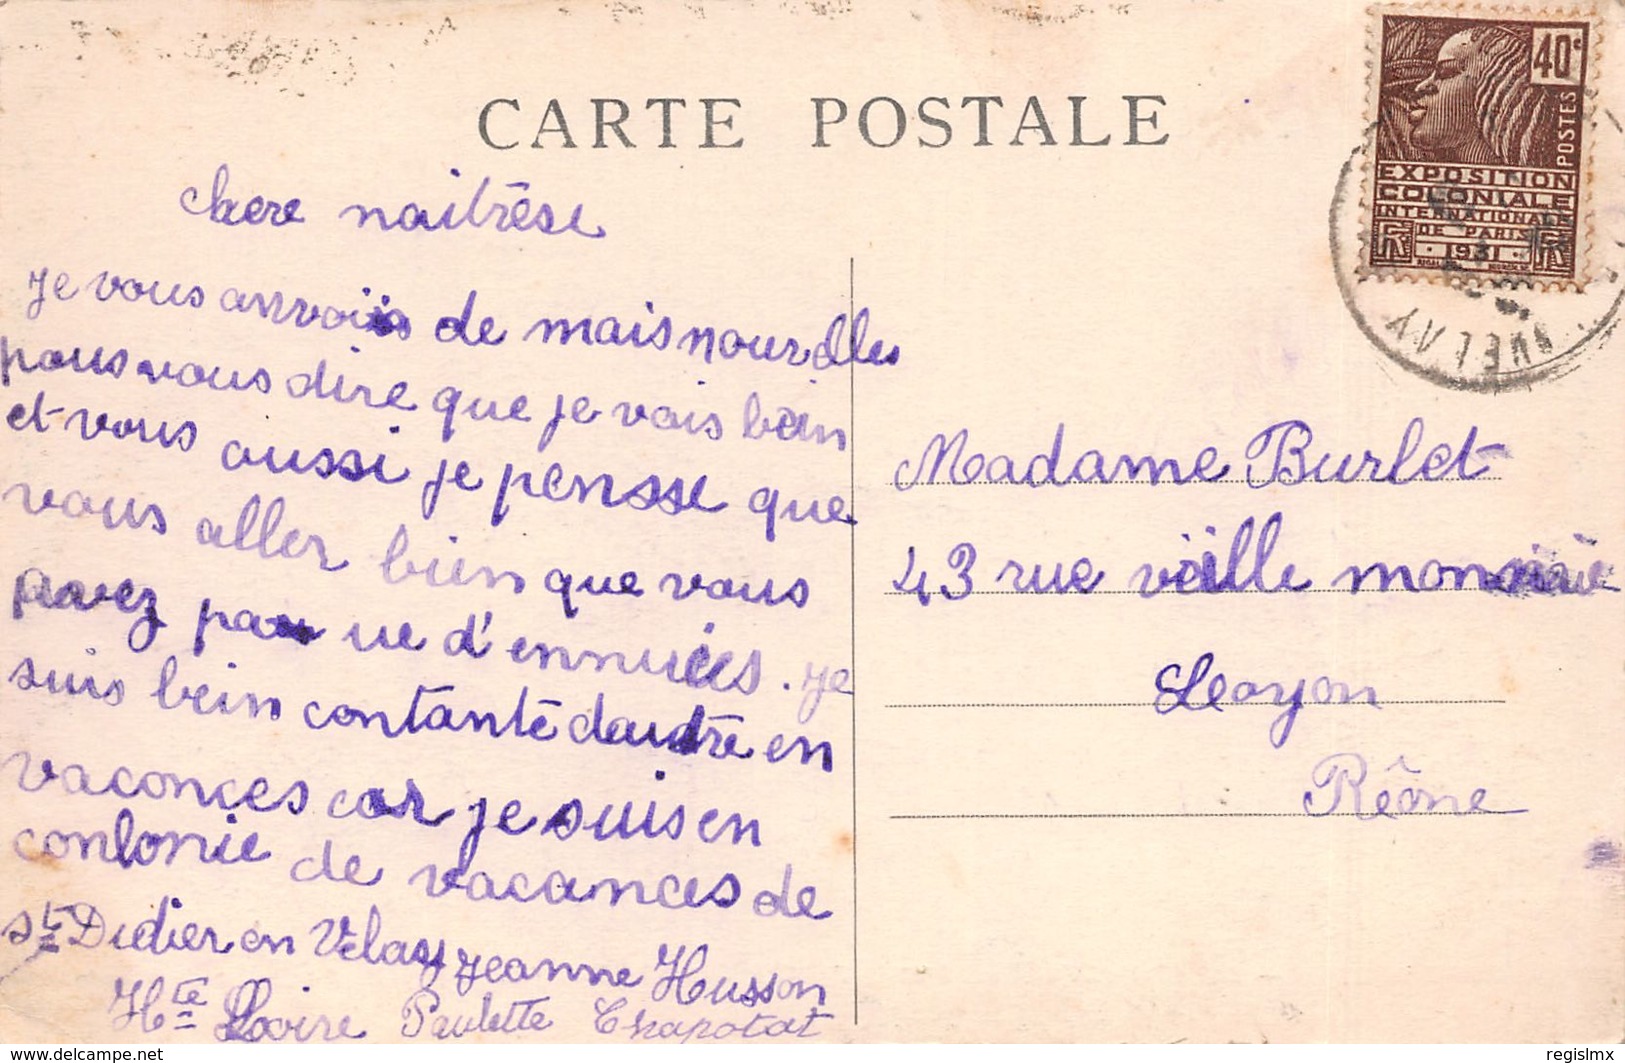 CARTE POSTALE
40c
POSTES
EXPOSITION
COLONIALE
INTERNATIONALE
DE PARIS
1931
VELAY
chere naitrèse
je vous anvois de mais nourdlles
pous vous dire que je vais bein
et vous aussi je pensse que
vous aller bien que vous
avez pas ue d'ennuies. je
suis bein contante daudre en
vaconces car je suis en
conlonie de vacances de
St Didier en Velay Jeanne Husson
Hte Loire Paulette Chapotat
Madame Burlet
43 rue veille
Leoyon
Rêone
delcampe.net
regislmx